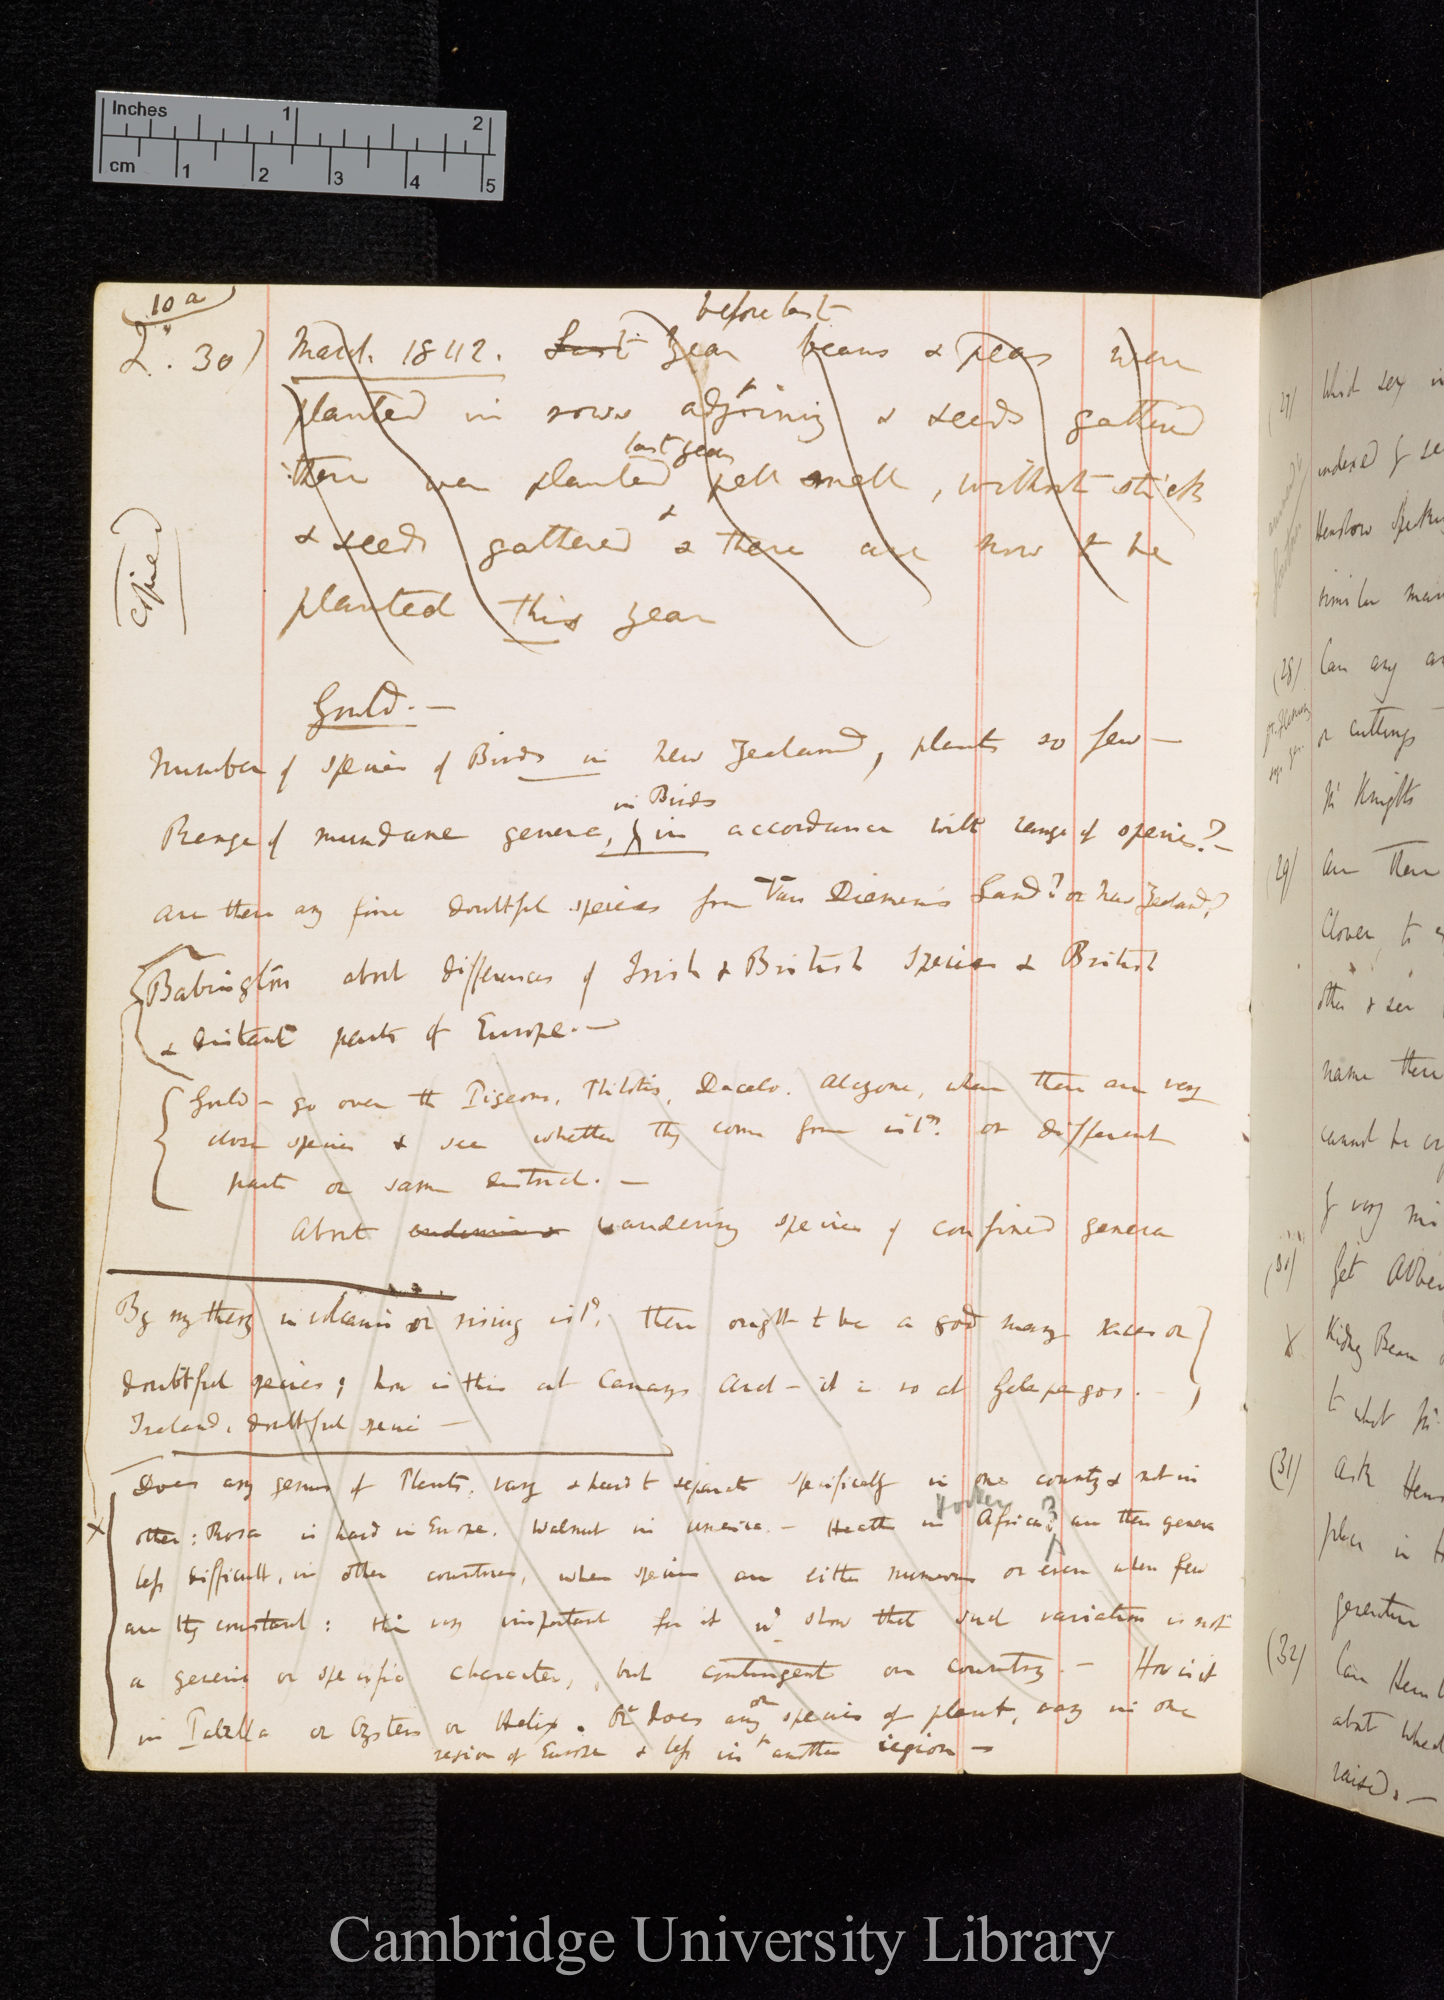 Inches 1 2
cm 1 2 3 4 5
10 a
Q. 30)
before last
March 1842. Last Year beans & peas were
planted in rows adjoining & seeds gathered
last year
these were planted pell mell, without sticks
& seeds gathered & these are now to be
planted this year
copied
Gould. —
Number of species of Birds in New Zealand, plants so few —
in Birds
Range of mundane genera, in accordance with range of species? —
Are there any fine doubtful species from Van Diemen's Land? or New Zealand?
Babington about differences of Irish & British Species & British
& distant parts of Europe. —
Gould — go over the Pigeons, Ptilotis, Dacelo. Alcyone, where there are very
close species & see whether they come from isld? or different
parts or same district. —
About endemic wandering species of confined genera
By my theory in volcanic or rising isld, there ought to be a good many races or
doubtful species; how is this at Canary Arch — it is so at Galapagos. —
Ireland, doubtful specie —
Does any genus of Plants, vary & hard to separate specifically in one country & not in
Hooker
other: Rosa is hard in Europe. Walnut in America. — Heath in Africa? are these genera
less difficult, in other countries, where species are either numerous or even when few
are they constant: this very important for it wd show that such variation is not
a generic or specific character, but contingent on country. — How is it
in Patella or Oysters or Helix. Or does any one species of plant, vary in one
region of Europe & less in another region —
(27) Which sex
Henslow
(28) Can any
or cuttings
Mr Knights
(29) Are there
Clover to
other & see
name there
cannot be
of very
(30) Get Abber
Kidney Bean
to what
(31) Ask Hens
place in
(32) Can Hens
about
raised. —
Cambridge University Library